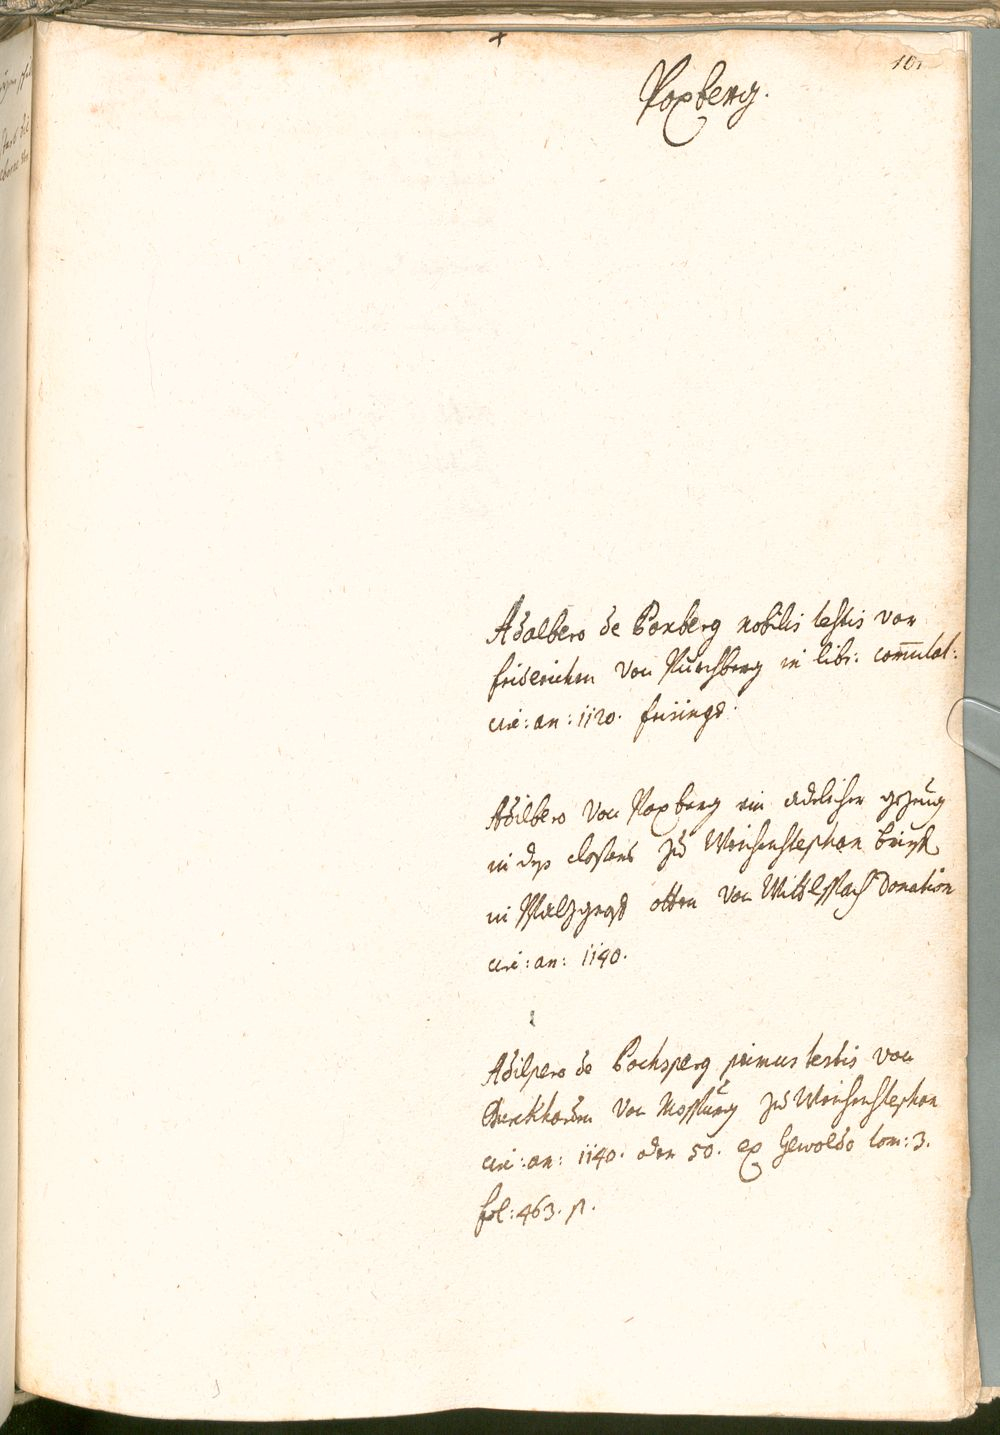 101
Poxberg.
Adalbero de Boxberg nobilis testis von
friderichen von Purchberg in libr: commutat:
circ: an: 1120. frisingḡ.
Adilbero von Poxberg ein adelicher gezeug
in des closters zu Weihenstephan brief
in Pfalzgraf otten von Wittlspach Donation
circ: an: 1140.
Adilpero de Pochsperg primus testis von
Burckharden von Mosburg zu Weihenstephan
circ: an: 1140. oder 50. ex Gewoldo tom: 3.
fol: 463. p.